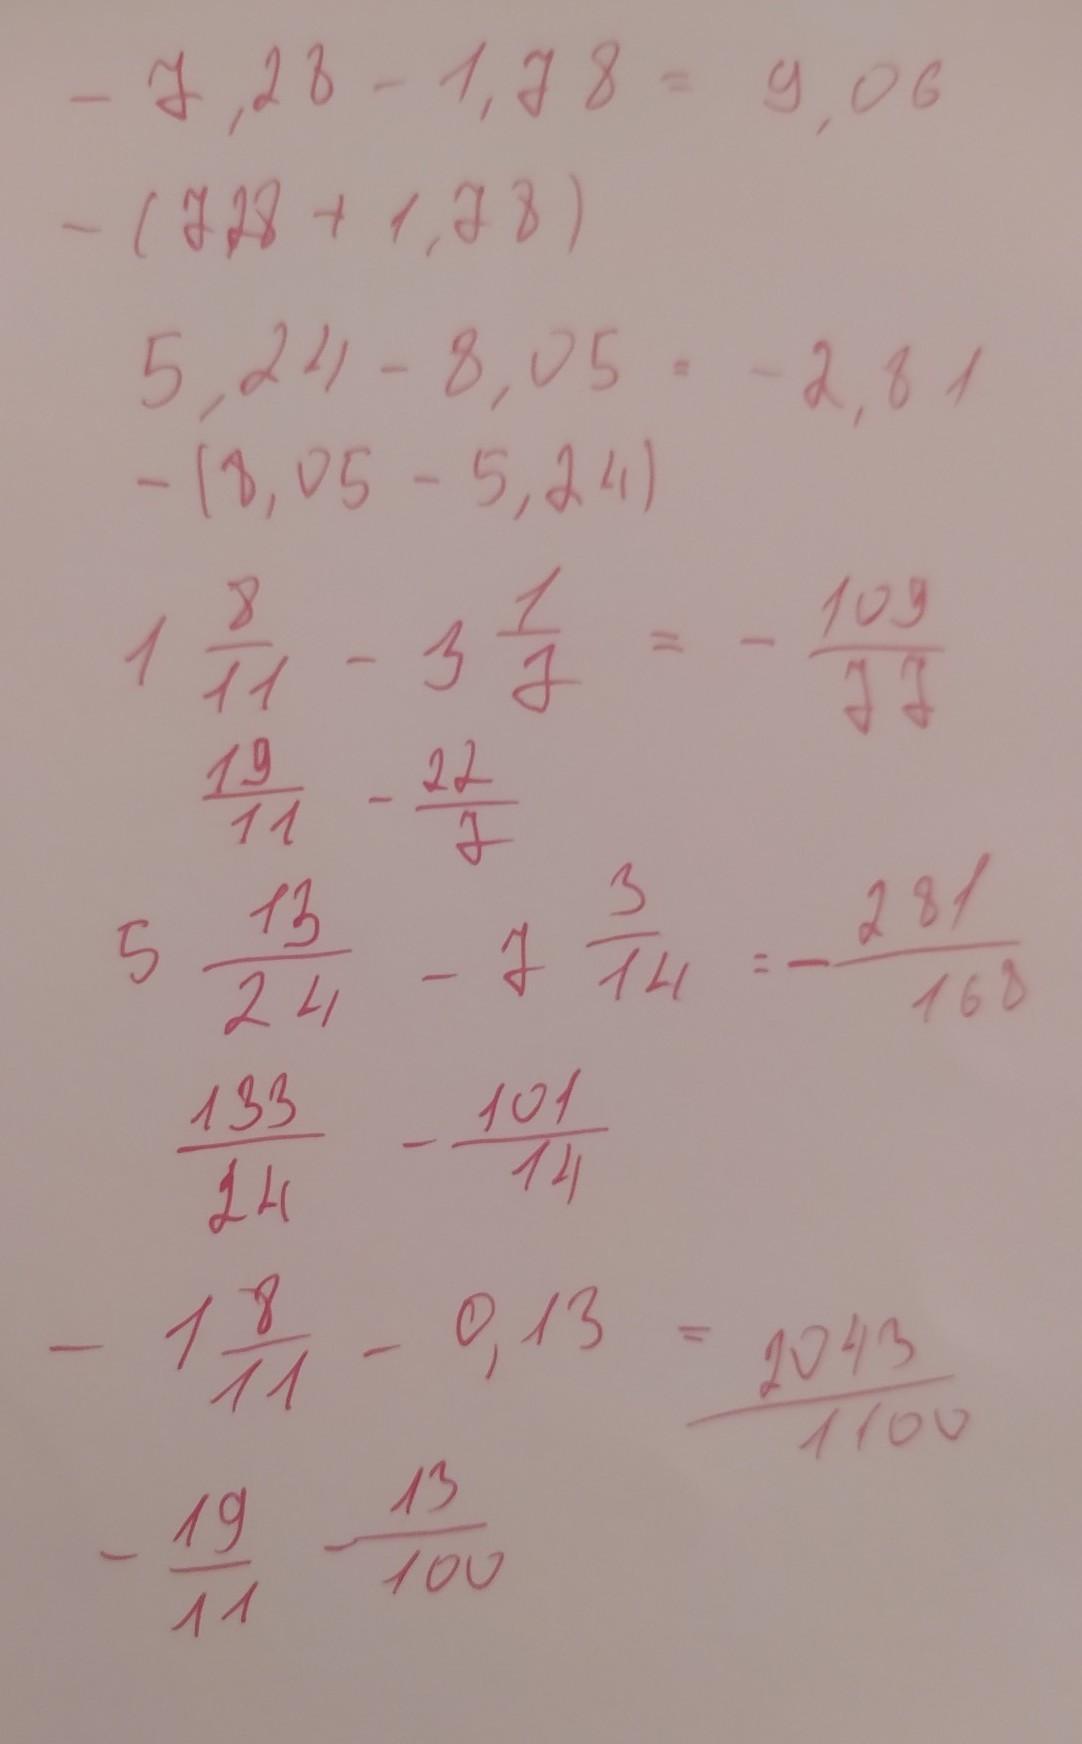 - 7,28 - 1,78 = 9,06
- (7,28 + 1,78)
5,24 - 8,05 = -2,81
- (8,05 - 5,24)
1 8/11 - 3 1/7 = - 109/77
19/11 - 22/7
5 13/24 - 7 3/14 = - 281/168
133/24 - 101/14
- 1 8/11 - 0,13 = 2043/1100
- 19/11 - 13/100